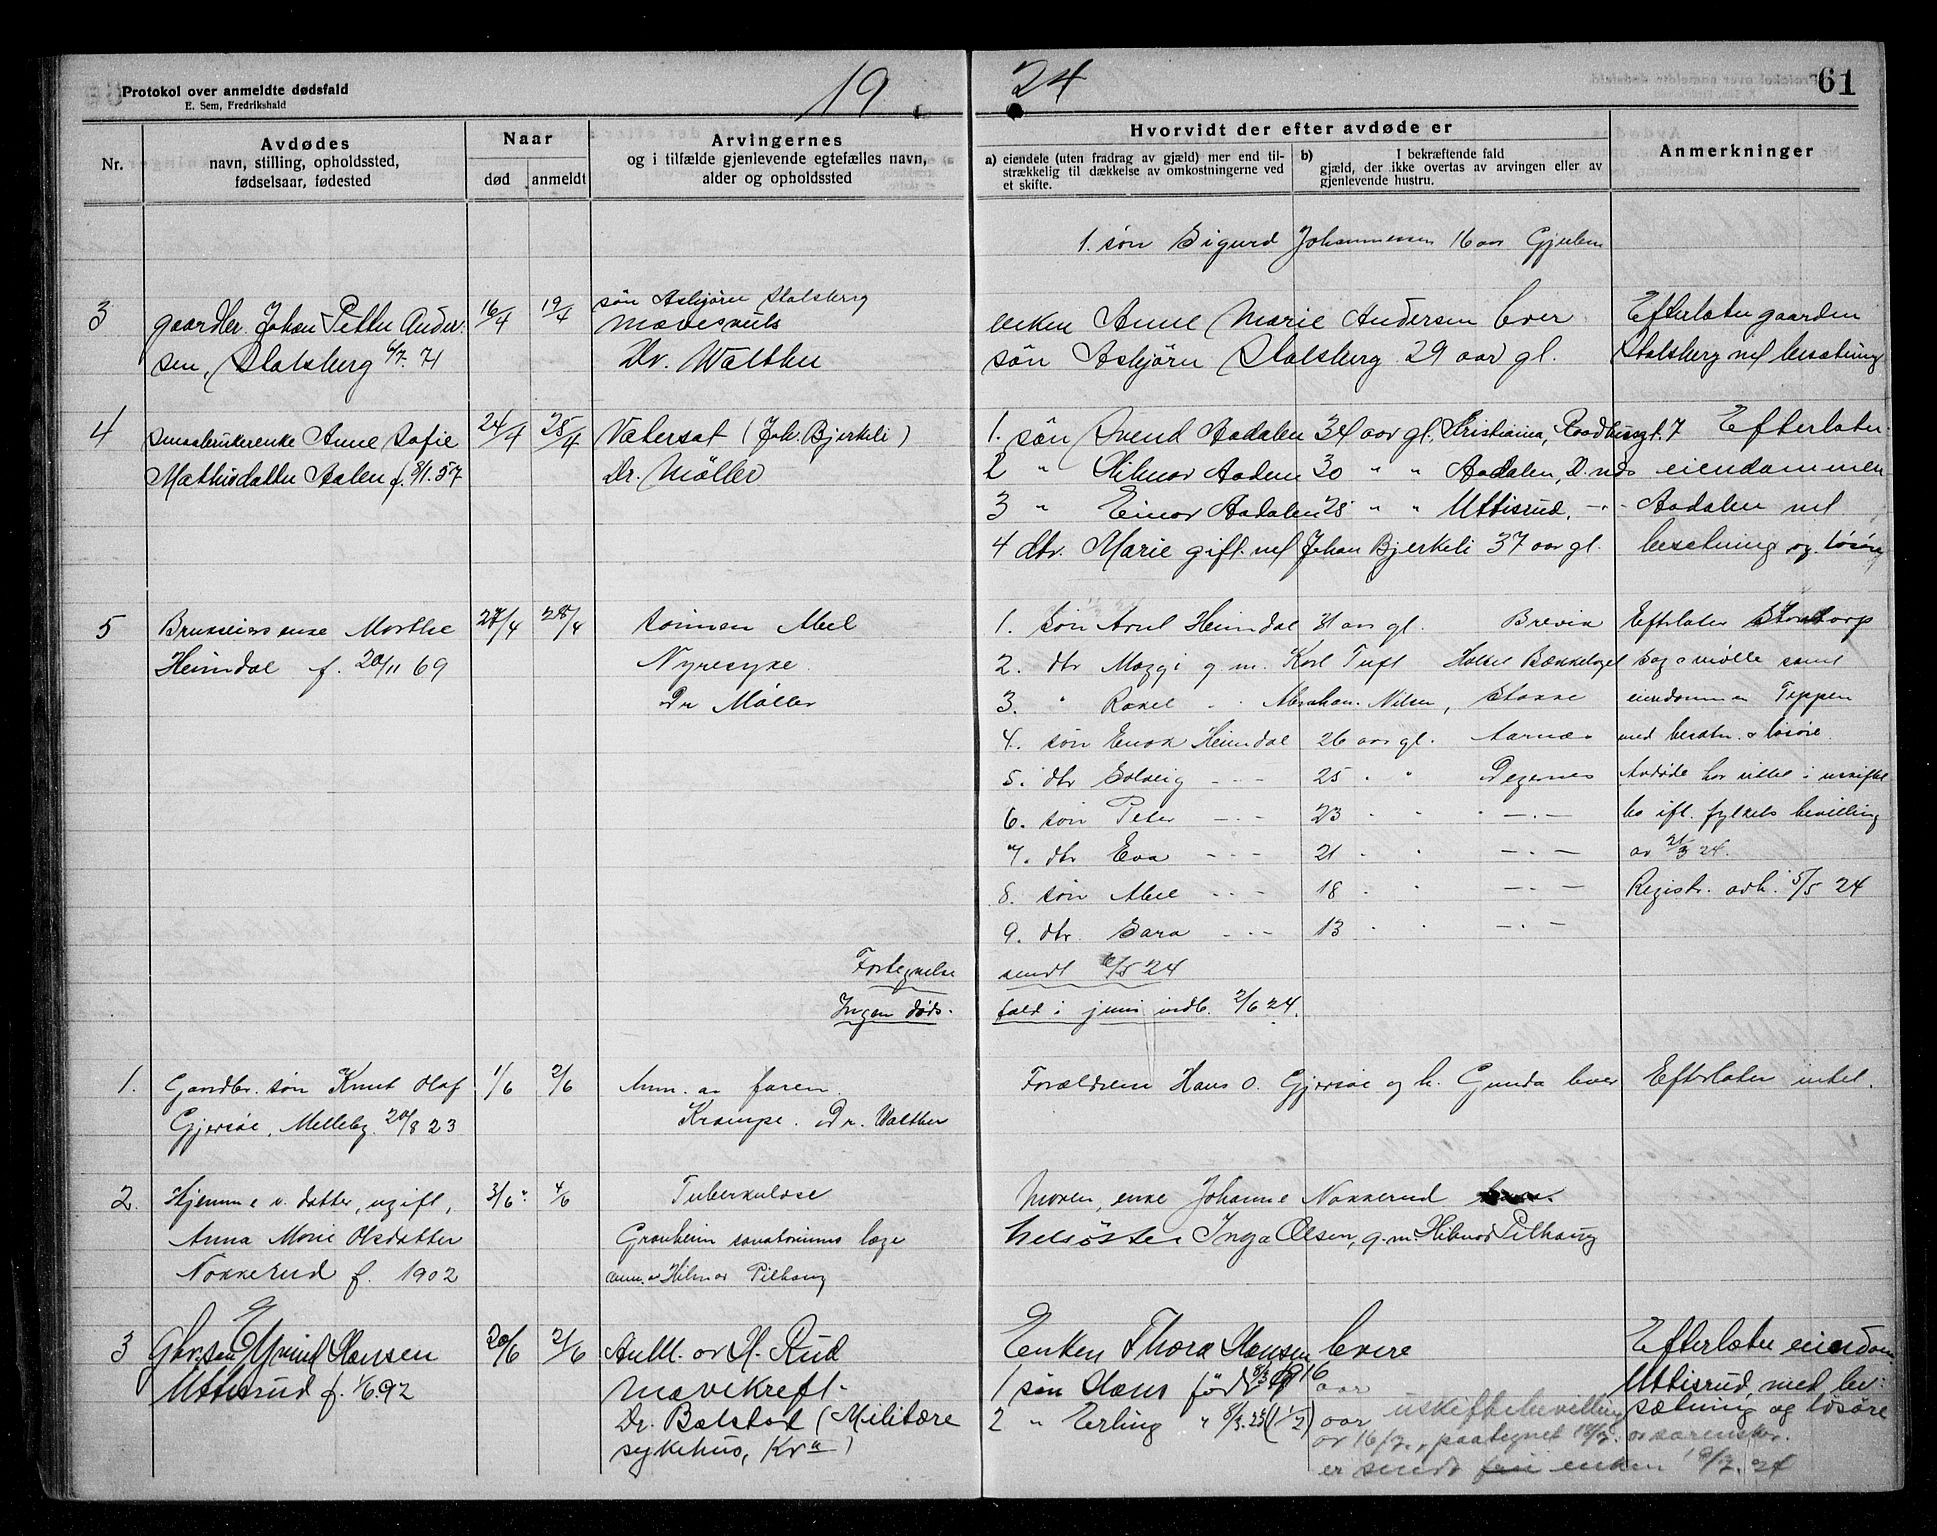 Protokol over anmeldte dødsfald
E. Sem, Fredrikshald
19 24
61
Nr.
Avdødes
navn, stilling, opholdssted,
fødselsaar, fødested
Naar
død
anmeldt
Arvingernes
og i tilfælde gjenlevende egtefælles navn,
alder og opholdssted
Hvorvidt der efter avdøde er
a) eiendele (uten fradrag av gjæld) mer end til-
strækkelig til dækkelse av omkostningerne ved
et skifte.
b) I bekræftende fald
gjæld, der ikke overtas av arvingen eller av
gjenlevende hustru.
Anmerkninger
1. søn Sigurd Johannessen 16 aar
3
gaardbr. Johan Petter Ander-
sen, Stalsberg 6/7. 71
16/4
19/4
søn Asbjørn Stalsberg
mavesaels
Dr. Walther
enken Anne Marie Andersen lever
søn Asbjørn Stalsberg 29 aar gl.
Efterlater gaarden
Stalsberg med besætning
4
Smaabrukerenke Anne Sofie
Mathisdatter Aalen f. 8/1. 57
24/4
25/4
Vatersot (Joh. Bjerkeli)
Dr. Møller
1. søn Svend Aadalen 34 aar gl. Kristiania, Raadhusgt. 7
2 " Hilmar Aadalen 30 " " Aadalen,
3 " Einar Aadalen 28 " " Uttisrud, -"-
4 dtr. Marie gift med Johan Bjerkeli 37 aar gl.
Efterlater
eiendommen
Aadalen med
besetning og løsøre
5
Brukseiers enke Marthe
Heimdal f. 20/11 69
27/4
28/4
Sønnen Abel
Nyresyke
Dr Møller
1. søn Arnt Heimdal 31 aar gl. Brevik
2. dtr Maggi g. m. Karl Tuft Holtet Bækkelaget
3. " Rakel " " Abraham Nilsen, Stokke
4. søn Enok Heimdal 26 aar gl. Aarnæs
5. dtr Solveig - - - 25 " " Degernes
6. søn Peter - - - 23 " " - " -
7. dtr Eva - - - 21 " " - " -
8. søn Abel - - - 18 " " - " -
9. dtr. Sara - - - 13 " " - " -
Efterlater Stentorp
sag o mølle samt
eiendommen Teppen
med besætn. o løsøre.
Avdøde har sittet i uskiftet
bo ifl. fylkets bevilling
av 21/3 24.
Registr. avh. 5/5 24
Fortegnelse sendt 2/5 24
Ingen døds- fald i juni indb. 2/6 24.
1.
Gaardbr. søn Knut Olaf
Gjersøe, Melleby. 20/8 23
1/6
2/6
Anm. av faren
Krampe. Dr. Walther
Forældrene Hans O. Gjersøe og h. Gunda lever
Efterlater intet.
2.
Hjemme v. datter, ugift,
Anna Marie Olsdatter
Nokkerud f. 1902
3/6
4/6
Tuberkulose
Granheim sanatoriums læge
anm. av Hilmar Pilhaug
Moren, enke Johanne Nokkerud
helsøster Inga Olsen, g. m. Hilmar Pilhaug
3
Gbr. søn Øivind Hansen
Uttisrud f. 1/6 92
20/6
21/6
Anm. av H. Rud
mavekreft
Dr. Bølstad (Militære
sykehus, Kra)
Enken Thora Hansen lever
1 søn Hans født 8/3 1916 aar
2 " Erling " 8/3. 23 (1 1/2) aar
uskiftebevilling
av 16/7, paategnet 18/7. av sorensker.
er sendt fru enken 19/7. 24
Efterlater eiendom
Uttisrud, med be-
sætning og løsøre